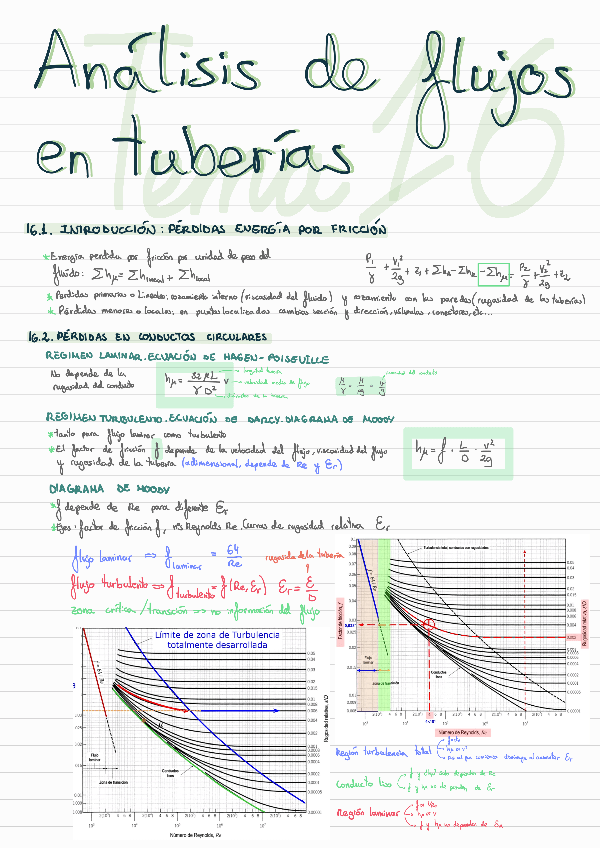 Análisis de flujos
en tuberías
Tema 16
16.1. INTRODUCCIÓN: PÉRDIDAS ENERGÍA POR FRICCIÓN
*Energía perdida por fricción por unidad de peso del
fluido: Σhμ = Σh lineal + Σh local
P₁/γ + V₁²/2g + z₁ + Σh - Σh - Σhμ = P₂/γ + V₂²/2g + z₂
* Perdidas primarias o lineales: rozamiento interno (viscosidad del fluido) y rozamiento con las paredes (rugosidad de las tuberías)
* Pérdidas menores o locales, en puntos localizados cambios sección y dirección, válvulas, conectores, etc...
16.2. PÉRDIDAS EN CONDUCTOS CIRCULARES
RÉGIMEN LAMINAR. ECUACIÓN DE HAGEN-POISEUILLE
No depende de la
rugosidad del conducto
hμ = 32μL/γD² v
longitud tubería
velocidad media de flujo
diámetro de la tubería
RÉGIMEN TURBULENTO. ECUACIÓN DE DARCY. DIAGRAMA DE MOODY
*Tanto para flujo laminar como turbulento
*El factor de fricción f depende de la velocidad del flujo, viscosidad del flujo
y rugosidad de la tubería (adimensional, depende de Re y Ɛr)
hμ = f · L/D · v²/2g
DIAGRAMA DE MOODY
*f depende de Re para diferente Ɛr
*Ejes: factor de fricción f, nº Reynolds Re. Curvas de rugosidad relativa Ɛr
flujo laminar => f laminar = 64/Re
rugosidad de la tubería
flujo turbulento => f turbulento = f(Re, Ɛr) Ɛr = Ɛ/D
zona crítica/transición => no información del flujo
Límite de zona de Turbulencia
totalmente desarrollada
Flujo
laminar
Zona de transición
Conductos
lisos
Rugosidad relativa, ε/D
Número de Reynolds, Re
Turbulencia total, conductos con rugosidades
Factor de fricción, f
Flujo
laminar
Zona de transición
Conductos
lisos
Rugosidad relativa, ε/D
Número de Reynolds, Re
Región turbulencia total
Conducto liso
f y no de Ɛr
Región laminar
f y hμ no dependen de Ɛr